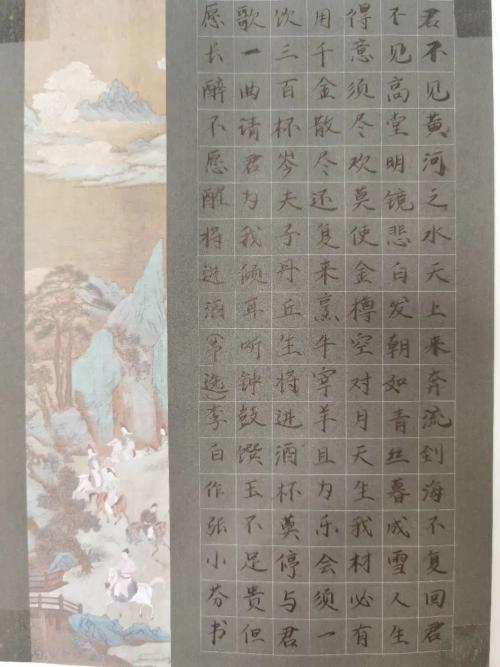 君不见黄河之水天上来奔流到海不复回君
不见高堂明镜悲白发朝如青丝暮成雪人生
得意须尽欢莫使金樽空对月天生我材必有
用千金散尽还复来烹牛宰羊且为乐会须一
饮三百杯岑夫子丹丘生将进酒杯莫停与君
歌一曲请君为我倾耳听钟鼓馔玉不足贵但
愿长醉不愿醒将进酒(节选)李白作张小芬书